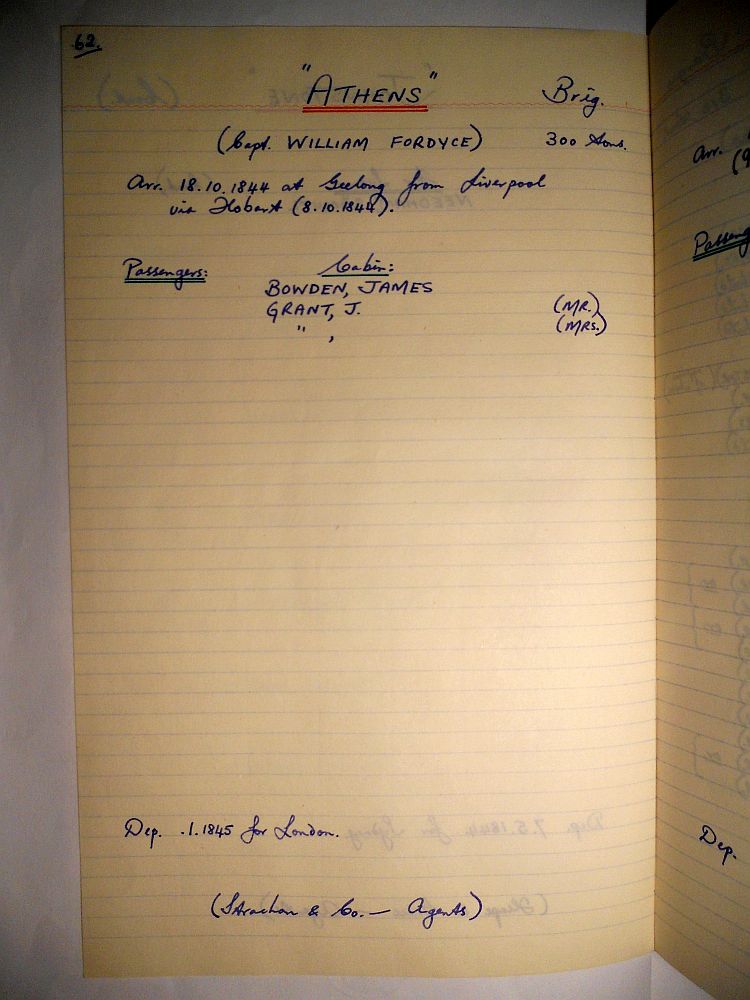 62.
"ATHENS" Brig.
(Capt. WILLIAM FORDYCE) 300 tons.
Arr. 18.10.1844 at Geelong from Liverpool
via Hobart (8.10.1844).
Passengers: Cabin:
BOWDEN, JAMES
GRANT, J. (MR.)
" , (MRS.)
Dep. .1.1845 for London.
(Strachan & Co. — Agents)
Arr.
Passeng
Dep.